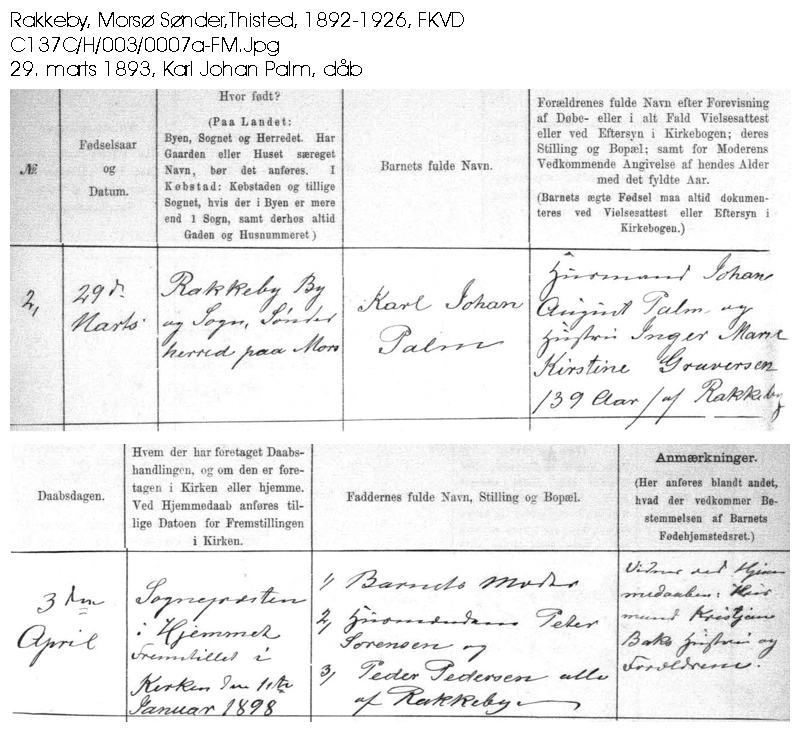 Rakkeby, Morsø Sønder,Thisted, 1892-1926, FKVD
C137C/H/003/0007a-FM.Jpg
29. marts 1893, Karl Johan Palm, dåb
№
Fødselsaar
og
Datum.
Hvor født?
(Paa Landet:
Byen, Sognet og Herredet. Har
Gaarden eller Huset særeget
Navn, bør det anføres. I
Købstad: Købstaden og tillige
Sognet, hvis der i Byen er mere
end 1 Sogn, samt derhos altid
Gaden og Husnummeret)
Barnets fulde Navn.
Forældrenes fulde Navn efter Forevisning
af Døbe- eller i alt Fald Vielsesattest
eller ved Eftersyn i Kirkebogen; deres
Stilling og Bopæl; samt for Moderens
Vedkommende Angivelse af hendes Alder
med det fyldte Aar.
(Barnets ægte Fødsel maa altid dokumen-
teres ved Vielsesattest eller Eftersyn i
Kirkebogen.)
2,
29de
Marts
Rakkeby By
og Sogn, Sønder
herred paa Mors
Karl Johan
Palm
Husmand Johan
August Palm og
Hustru Inger Marie
Kirstine Graversen
/39 Aar/ af Rakkeby
Daabsdagen.
Hvem der har foretaget Daabs-
handlingen, og om den er fore-
tagen i Kirken eller hjemme.
Ved Hjemmedaab anføres til-
lige Datoen for Fremstillingen
i Kirken.
Faddernes fulde Navn, Stilling og Bopæl.
Anmærkninger.
(Her anføres blandt andet,
hvad der vedkommer Be-
stemmelsen af Barnets
Fødehjemstedsret.)
3 den
April
Sognepræsten
i Hjemmet
Fremstillet i
Kirken den 11te
Januar 1898
1, Barnets Moder
2, Husmændene Peter
Sørensen og
3, Peder Pedersen alle
af Rakkeby
Vidner ved Hjem
medaaben: Hus
mand Kristjan
Baks Hustru og
Forældrene.